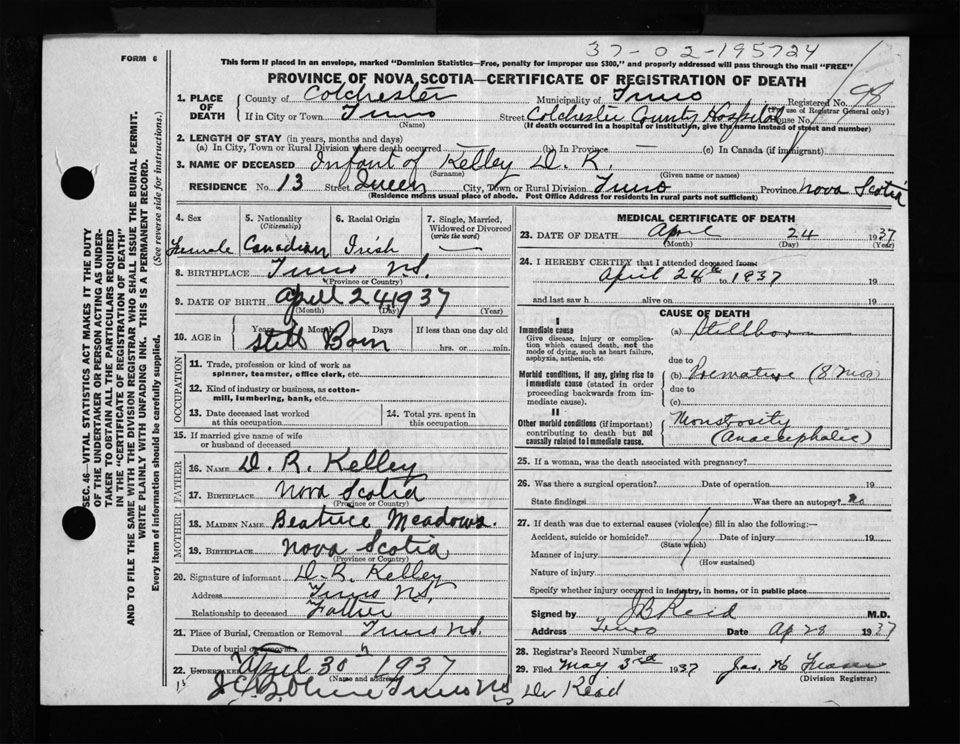 37-02-195724
FORM 6
This form if placed in an envelope, marked "Dominion Statistics—Free, penalty for improper use $300," and properly addressed will pass through the mail "FREE"
PROVINCE OF NOVA SCOTIA—CERTIFICATE OF REGISTRATION OF DEATH
1. PLACE OF DEATH
County of Colchester Municipality of Truro Registered No. 98
(For use of Registrar General only)
If in City or Town Truro Street Colchester County Hospital House No.
(Name) (If death occurred in a hospital or institution, give the name instead of street and number)
2. LENGTH OF STAY (in years, months and days)
(a) In City, Town or Rural Division where death occurred — (b) In Province — (c) In Canada (if immigrant)
3. NAME OF DECEASED Infant of Kelley D. R.
(Surname) (Given name or names)
RESIDENCE No. 13 Street Queen City, Town or Rural Division Truro Province Nova Scotia
(Residence means usual place of abode. Post Office Address for residents in rural parts not sufficient)
4. Sex 5. Nationality (Citizenship) 6. Racial Origin 7. Single, Married, Widowed or Divorced (write the word)
Female Canadian Irish —
8. BIRTHPLACE Truro N.S.
(Province or Country)
9. DATE OF BIRTH April 24 1937
(Month) (Day) (Year)
10. AGE in Years Months Days If less than one day old
Still Born hrs. or min.
OCCUPATION
11. Trade, profession or kind of work as spinner, teamster, office clerk, etc.
12. Kind of industry or business, as cotton-mill, lumbering, bank, etc.
13. Date deceased last worked at this occupation
14. Total yrs. spent in this occupation
15. If married give name of wife or husband of deceased
FATHER
16. Name D. R. Kelley
17. Birthplace Nova Scotia
(Province or Country)
MOTHER
18. MAIDEN NAME Beatrice Meadows.
19. BIRTHPLACE Nova Scotia
(Province or Country)
20. Signature of informant D. R. Kelley
Address Truro N.S.
Relationship to deceased Father
21. Place of Burial, Cremation or Removal Truro N.S.
Date of burial or removal
22. UNDERTAKER April 30th 1937
(Name and address)
Truro N.S.
MEDICAL CERTIFICATE OF DEATH
23. DATE OF DEATH April 24 1937
(Month) (Day) (Year)
24. I HEREBY CERTIFY that I attended deceased from:
April 24th to 1937 19
and last saw h alive on 19
CAUSE OF DEATH
I
Immediate cause
Give disease, injury or complication which caused death, not the mode of dying, such as heart failure, asphyxia, asthenia, etc.
(a) Stillborn
due to
Morbid conditions, if any, giving rise to immediate cause (stated in order proceeding backwards from immediate cause).
(b) Premature (8 mos)
due to
(c)
II
Other morbid conditions (if important) contributing to death but not causally related to immediate cause.
Monstrosity
(Anacephalic)
25. If a woman, was the death associated with pregnancy?
26. Was there a surgical operation? Date of operation 19
State findings Was there an autopsy? no
27. If death was due to external causes (violence) fill in also the following:—
Accident, suicide or homicide? Date of injury 19
(State which)
Manner of injury
(How sustained)
Nature of injury
Specify whether injury occurred in industry, in home, or in public place
Signed by J B Reid M.D.
Address Truro Date Ap 28 1937
28. Registrar's Record Number
29. Filed May 3rd 1937 Jas. H
(Division Registrar)
Dr Reid
SEC. 46—VITAL STATISTICS ACT MAKES IT THE DUTY
OF THE UNDERTAKER OR PERSON ACTING AS UNDER-
TAKER TO OBTAIN ALL THE PARTICULARS REQUIRED
IN THE "CERTIFICATE OF REGISTRATION OF DEATH"
AND TO FILE THE SAME WITH THE DIVISION REGISTRAR WHO SHALL ISSUE THE BURIAL PERMIT.
WRITE PLAINLY WITH UNFADING INK. THIS IS A PERMANENT RECORD.
Every item of information should be carefully supplied. (See reverse side for instructions.)